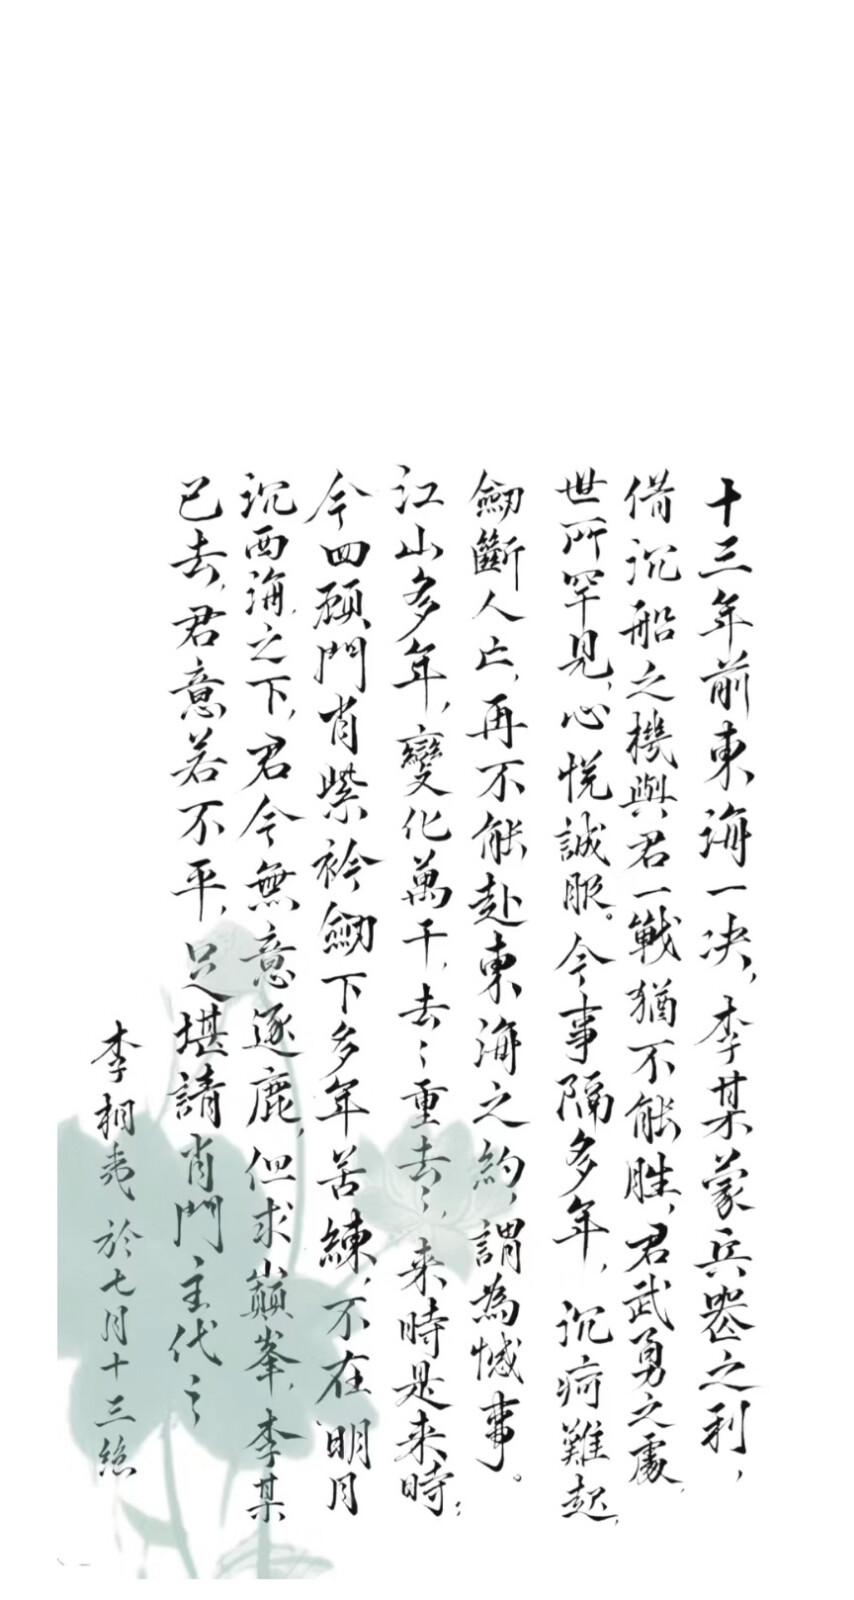 十三年前東海一决，李某蒙兵器之利，
借沉船之機與君一戰猶不能胜，君武勇之處，
世所罕見，心悅誠服。今事隔多年，沉疴難起，
劒斷人亡，再不能赴東海之約，謂為憾事。
江山多年，變化萬千，去〻重去〻，来時是来時；
今四顾門肖紫衿劒下多年苦練，不在明月
沉西海之下，君今無意逐鹿，但求巔峯，李某
已去，君意若不平，只堪請肖門主代之
李相夷 於七月十三絶